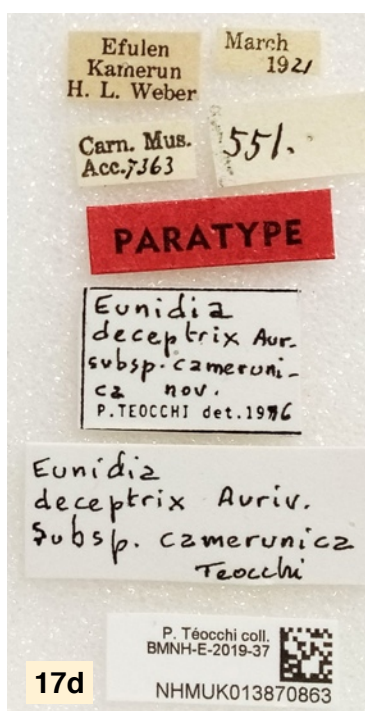 Efulen
Kamerun
H. L. Weber
March
1921
Carn. Mus.
Acc.7363
551.
PARATYPE
Eunidia
deceptrix Aur.
subsp. cameruni-
ca nov.
P.TEOCCHI det.1996
Eunidia
deceptrix Auriv.
Subsp. camerunica
Teocchi
P. Téocchi coll.
BMNH-E-2019-37
NHMUK013870863
17d